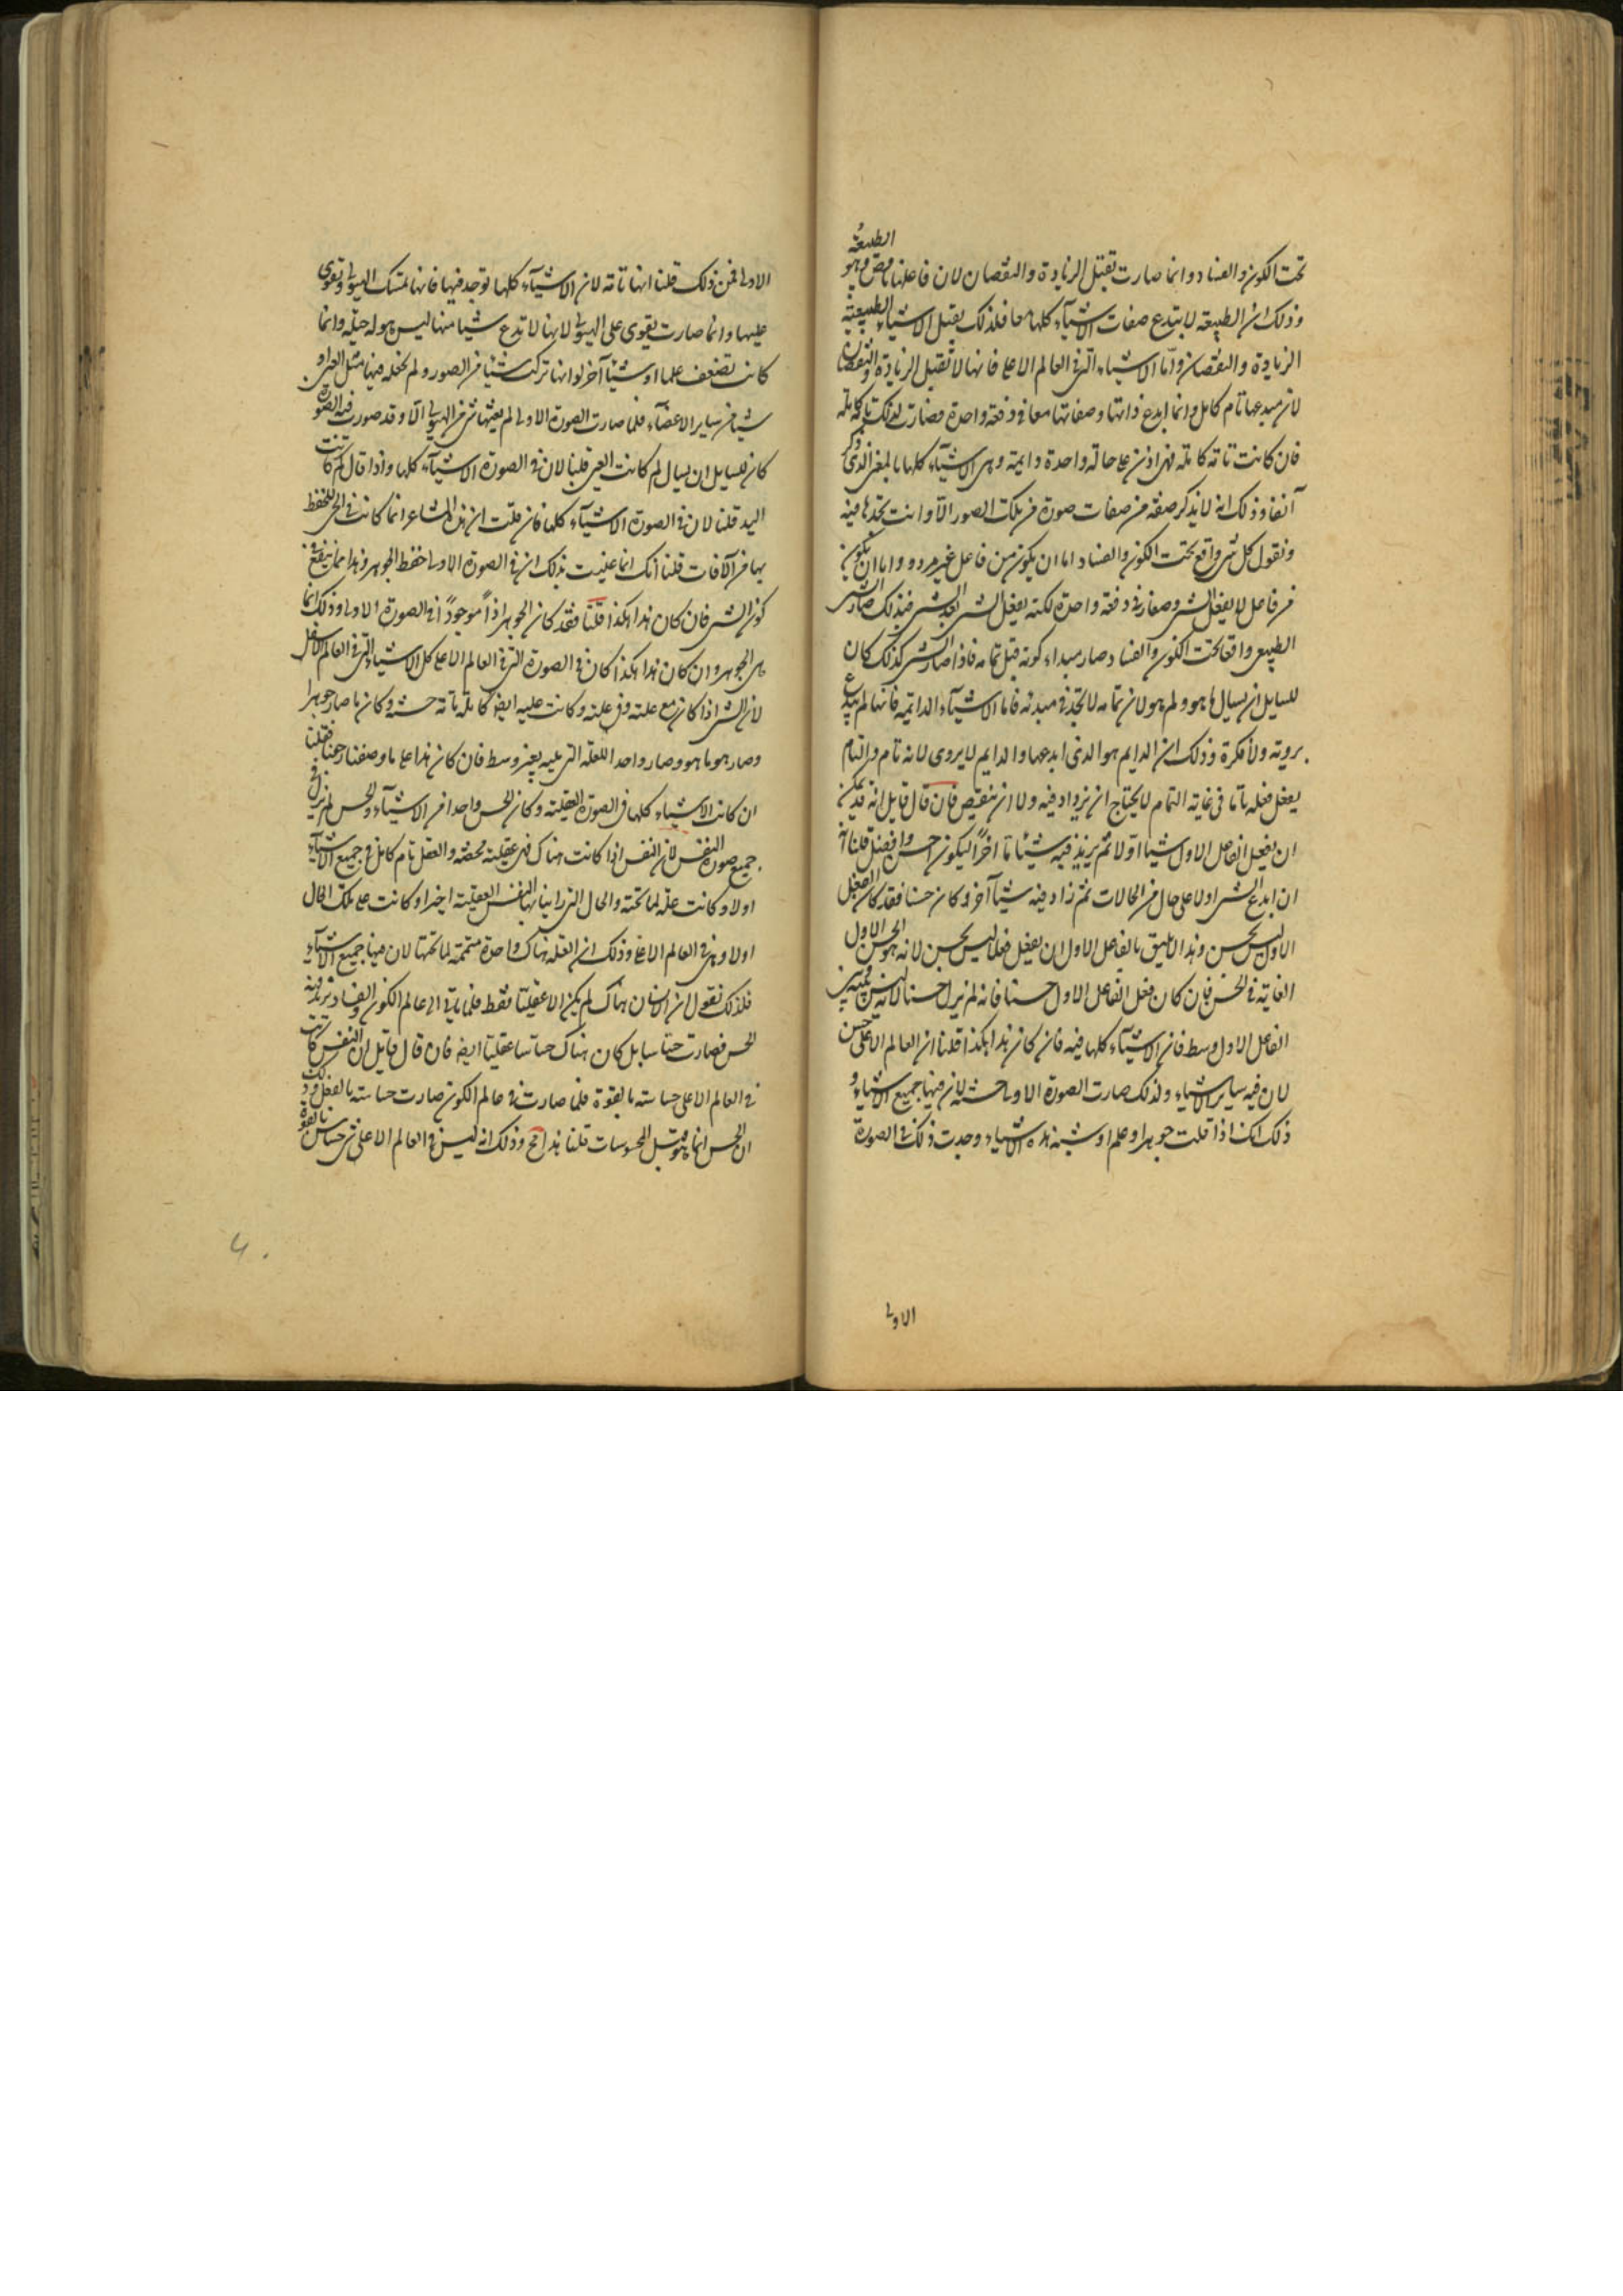 تحت الكون والفساد وانما صارت تقبل الزيادة والنقصان لان فاعلها ناقص وهو الطبيعة
وذلك ان الطبيعة لا تبدع صفات الاشياء كلها معا فلذلك يقبل الاشياء الطبيعية
الزيادة والنقصان واما الاشياء التى فى العالم الاعلى فانها لا تقبل الزيادة والنقصان
لان مبدعها تام كامل وانما ابدع ذاتها وصفاتها معا فى دفعة واحدة فصارت لذلك تامة كاملة
فان كانت تامة كاملة فهى اذن على حالة واحدة دايمة وهى الاشياء كلها بالمعنى الذى ذكر
آنفا وذلك انه لا يذكر صفة من صفات صورة من تلك الصور الا وانت تجدها فيه
ونقول كل شى واقع تحت الكون والفساد اما ان يكون من فاعل غير مرو واما ان يكون
من فاعل لا يفعل الشى وصفاته فى دفعة واحدة لكنه يفعل الشى بعد الشى فبذلك صار الشى
الطبيعى واقعا تحت الكون والفساد صار مبداء كونه قبل تمامه فاذا صار الشى كذلك كان
للسايل ان يسال ما هو ولم هو لان تمامه لا تجده فى مبدئه فاما الاشياء الدايمة فانها لم تبدع
بروية ولا فكرة وذلك ان الدايم هو الذى ابدعها والدايم لا يروى لانه تام والتام
يفعل فعله تاما فى غاية التمام لا يحتاج ان يزداد فيه ولا ان ينقص فان قال قايل انه قد يمكن
ان يفعل الفاعل الاول شيا اولا ثم يزيد فيه شيئا ما اخرا ليكون احسن وافضل قلنا انه
ان ابدع الشى اولا على حال من الحالات ثم زاد فيه شيئا آخر وكان حسنا فقد كان الفعل
الاول ليس بحسن وهذا لا يليق بالفاعل الاول ان يفعل فعلا ليس بحسن لانه هو الحسن الاول
الغاية فى الحسن فان كان فعل الفاعل الاول حسنا فانه لم يزل حسنا لانه ليس بينه وبين
الفاعل الاول وسط فان الاشياء كلها فيه فان كان هذا هكذا قلنا ان العالم الاعلى حسن
لان فيه ساير الاشياء ولذلك صارت الصورة الاولى حسنة لان فيها جميع الاشياء و
ذلك انك اذا قلت جوهرا وعلم او شبه هذه الاشياء وجدت ذلك فى الصورة
الاولى
الاولى فمن ذلك قلنا انها تامة لان الاشياء كلها توجد فيها فانها تمسك الهيولى وتقوى
عليها وانما صارت يقوى على الهيولى لانها لا تدع شيا منها ليس هو له حيلة وانما
كانت تضعف علما او شيئا آخر لو انها تركت شيئا من الصور ولم تجعله فيها مثل العين او
شيا من ساير الاعضاء فلما صارت الصورة الاولى لم يفتها شى من الهيولى الا وقد صورت فيه الصور
كان للسايل ان يسال لم كانت العين قلنا لان فى الصورة الاشياء كلها واذا قال لم كانت
اليد قلنا لان فى الصورة الاشياء كلها فان قلت ان هذه المشاعر انما كانت فى الحى للحفظ
بها من الآفات قلنا انك انما عنيت بذلك ان فى الصورة الاولى حفظ الجوهر وهذا مما ينفع فى
كون الشى فان كان هذا هكذا قلنا فقد كان الجوهر اذا موجودا فى الصورة الاولى وذلك انها
هى الجوهر وان كان هذا هكذا كان فى الصورة التى فى العالم الاعلى كل الاشياء التى فى العالم الاسفل
لان الشى اذا كان مع علته وفى علته وكانت عليه ايضا كاملة تامة حسنة وكان ما صار جوهرا
وصار هو ما هو وصار واحدا للعلة التى عليه بغير وسط فان كان هذا على ما وصفنا رجعنا فقلنا
ان كانت الاشياء كلها فى الصورة العقلية وكان الحس واحدا من الاشياء والحس لم يزل فى
جميع صورة النفس لان النفس اذا كانت هناك فهى عقلية محضة والعقل تام كامل فى جميع الاشياء
اولا وكانت علة لما تحته والحال التى راينا بها النفس العقلية اخيرا وكانت على تلك الحال
اولا وهى فى العالم الاعلى وذلك ان العلة هناك واحدة متممة لما تحتها لان فيها جميع الاشياء
فلذلك نقول ان الانسان هناك لم يكن الا عقليا فقط فلما ياتى الى عالم الكون والفساد تزيد فيه
الحس فصارت حساسا بل كان هناك حساسا عقليا ايضا فان قال قايل ان النفس كانت
فى العالم الاعلى حساسة بالقوة فلما صارت فى عالم الكون صارت حساسة بالفعل وذلك
ان الحس انما هو قبل المحسوسات قلنا هذا قبح وذلك انه ليس فى العالم الاعلى شى حساس بالقوة